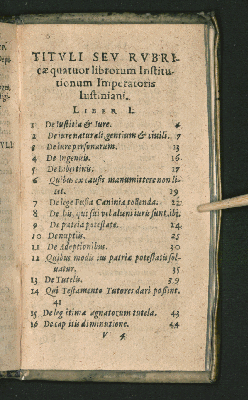 TITVLI SEV RVBRI
cæ quatuor librorum Institu-
tionum Imperatoris
Iustiniani.
LIBER I.
1 De Iustitia & Iure. 4
2 De iure naturali, gentium & ciuili. 7
3 De iure personarum. 13
4 De Ingenuis. 16
5 De Libertinis. 17
6 Quibus ex causis manumittere non li-
cet. 19
7 De lege Fusia Caninia tollenda. 22
8 De his, qui sui vel alieni iuris sunt. ibi.
9 De patria potestate. 24
10 De nuptiis. 25
11 De Adoptionibus. 30
12 Quibus modis ius patriæ potestatis sol-
uatur. 35
13 De Tutelis. 39
14 Qui Testamento Tutores dari possint.
41
15 De legitima agnatorum tutela. 43
16 De capitis diminutione. 44
V 4